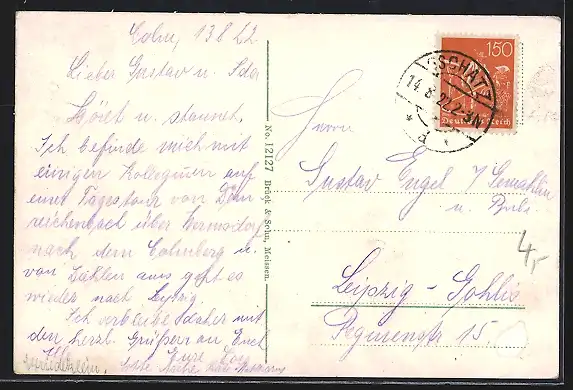 Colm, 13 8 22
Lieber Gustav u. Ida
Höret u. staunet.
Ich befinde mich mit
einigen Kollegen auf
einer Tagestour von
reichenbach über Hermsdorf
nach dem Colmberg u.
von Dahlen aus geht es
wieder nach Leipzig.
Ich verbleibe daher mit
den herzl. Grüßen an Euch
Eure
No. 12127 Brück & Sohn, Meissen.
150
Deutsches Reich
OSCHATZ
14.8.22. 2-3N
* a
Herrn
Gustav Engel / Gemahlin
u.
Leipzig - Gohlis
15.
4,-